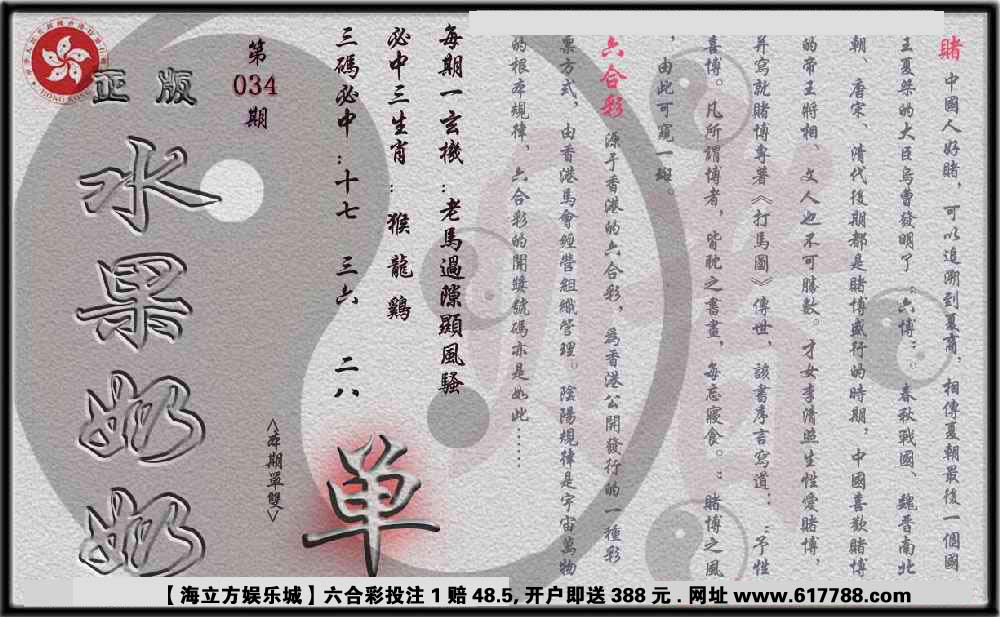 賭 中國人好賭，可以追溯到夏商，相傳夏朝最後一個國
王夏桀的大臣烏曹發明了“六博”，春秋戰國、魏晉南北
朝、唐宋、清代後期都是賭博盛行的時期，中國喜歡賭博
的帝王將相、文人也不可勝數。才女李清照生性愛賭博，
并寫就賭博專著《打馬圖》傳世，該書序言寫道：“予性
喜博。凡所謂博者，皆耽之晝畫，每忘寢食。”賭博之風
，由此可窺一斑。
六合彩 源于香港的六合彩，為香港公開發行的一種彩
票方式，由香港馬會經營組織管理。陰陽規律是宇宙萬物
的根本規律，六合彩的開獎號碼亦是如此……
每期一玄機：老馬過隙顯風騷
必中三生肖：猴 龍 鷄
三碼必中：十七 三六 二八
第
034
期
<本期單雙>
单
正版
水果奶奶
【海立方娱乐城】六合彩投注1赔48.5,开户即送388元.网址www.617788.com